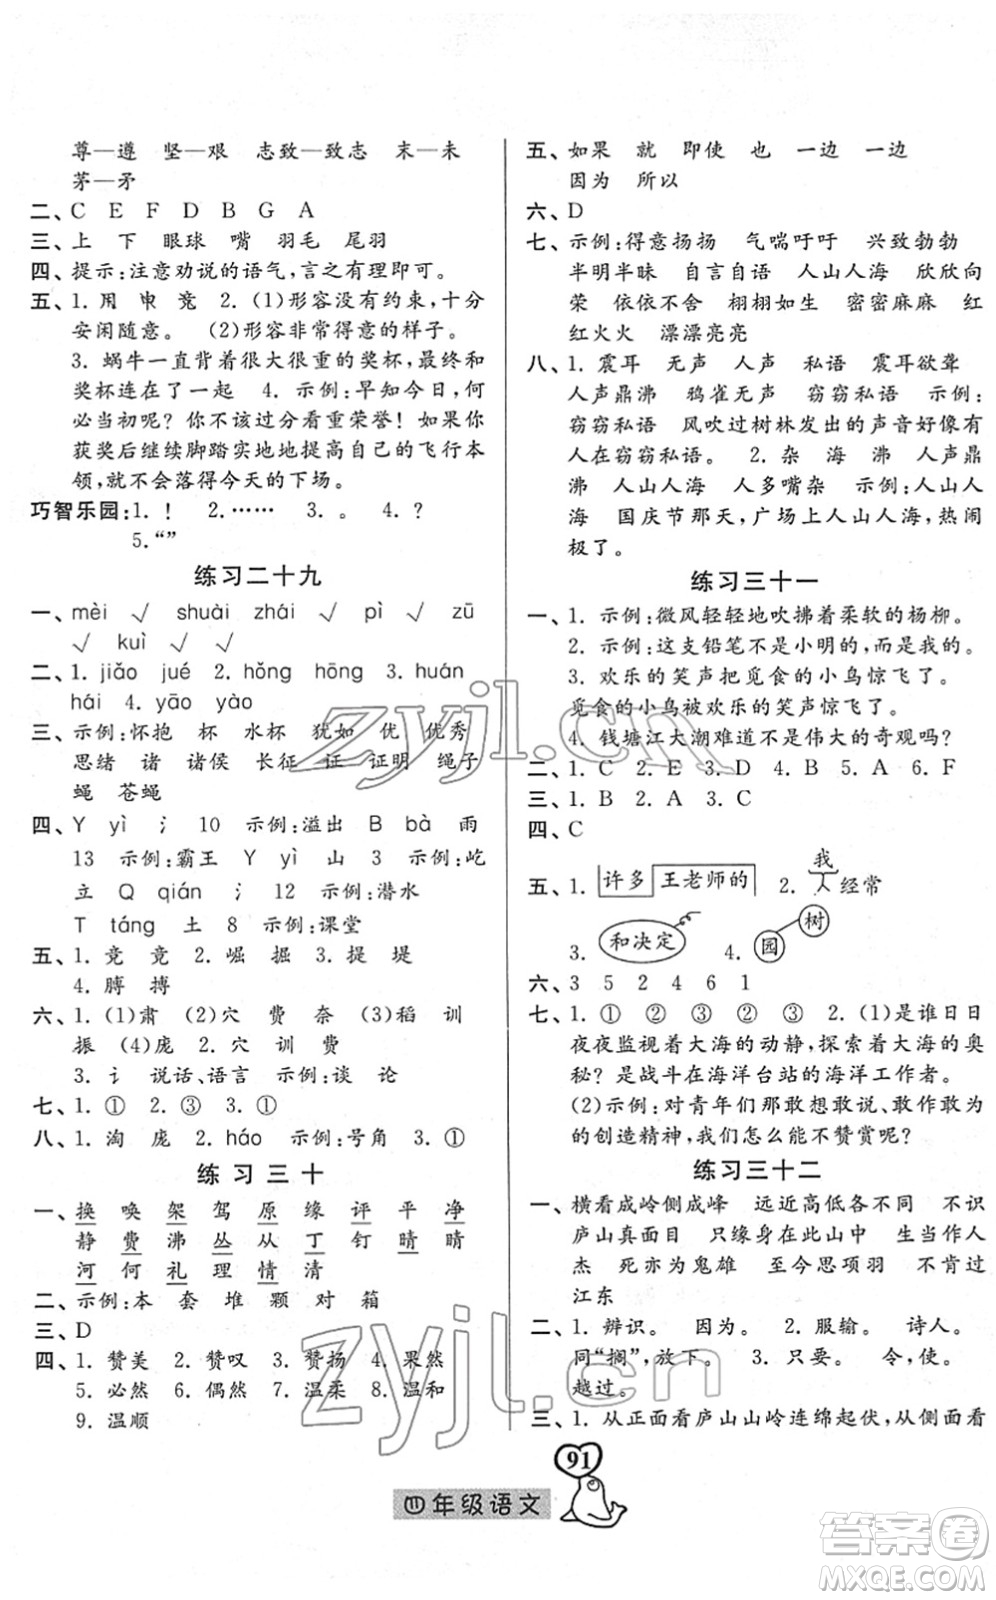 尊—遵 坚—艰 志致—致志 末—未
茅—矛
二、C E F D B G A
三、上 下 眼球 嘴 羽毛 尾羽
四、提示:注意劝说的语气,言之有理即可。
五、1. 用 申 竞 2. (1)形容没有约束,十分
安闲随意。 (2)形容非常得意的样子。
3. 蜗牛一直背着很大很重的奖杯,最终和
奖杯连在了一起 4. 示例:早知今日,何
必当初呢? 你不该过分看重荣誉! 如果你
获奖后继续脚踏实地地提高自己的飞行本
领,就不会落得今天的下场。
巧智乐园:1. ! 2. …… 3. 。 4. ?
5. “”
练习二十九
一、mèi √ shuài zhái √ pì √ zū
√ kuì √ √
二、1. jiǎo jué 2. hǒng hōng 3. huán
hái 4. yāo yào
三、示例:怀抱 杯 水杯 犹如 优 优秀
思绪 诸 诸侯 长征 证 证明 绳子
蝇 苍蝇
四、Y yì 氵 10 示例:溢出 B bà 雨
13 示例:霸王 Y yì 山 3 示例:屹
立 Q qián 氵 12 示例:潜水
T táng 土 8 示例:课堂
五、1. 竞 竟 2. 崛 掘 3. 提 堤
4. 膊 搏
六、1. (1)肃 (2)穴 费 奈 (3)稻 训
振 (4)庞 2. 穴 训 费
3. 讠 说话、语言 示例:谈 论
七、1. ① 2. ③ 3. ①
八、1. 淘 庞 2. háo 示例:号角 3. ①
练习三十
一、换 唤 架 驾 原 缘 评 平 净
静 费 沸 丛 从 丁 钉 晴 睛
河 何 礼 理 情 清
二、示例:本 套 堆 颗 对 箱
三、D
四、1. 赞美 2. 赞叹 3. 赞扬 4. 果然
5. 必然 6. 偶然 7. 温柔 8. 温和
9. 温顺
五、如果 就 即使 也 一边 一边
因为 所以
六、D
七、示例:得意扬扬 气喘吁吁 兴致勃勃
半明半昧 自言自语 人山人海 欣欣向
荣 依依不舍 栩栩如生 密密麻麻 红
红火火 漂漂亮亮
八、1. 震耳 无声 人声 私语 震耳欲聋
人声鼎沸 鸦雀无声 窃窃私语 示例:
窃窃私语 风吹过树林发出的声音好像有
人在窃窃私语。 2. 杂 海 沸 人声鼎
沸 人山人海 人多嘴杂 示例:人山人
海 国庆节那天,广场上人山人海,热闹
极了。
练习三十一
一、1. 示例:微风轻轻地吹拂着柔软的杨柳。
2. 示例:这支铅笔不是小明的,而是我的。
3. 欢乐的笑声把觅食的小鸟惊飞了。
觅食的小鸟被欢乐的笑声惊飞了。
4. 钱塘江大潮难道不是伟大的奇观吗?
二、1. C 2. E 3. D 4. B 5. A 6. F
三、1. B 2. A 3. C
四、C
五、1. 许多 王老师的 2. 我 经常
3. 和决定 4. 园 树
六、3 5 2 4 6 1
七、1. ① ② ③ ② ③ 2. (1)是谁日日
夜夜监视着大海的动静,探索着大海的奥
秘? 是战斗在海洋台站的海洋工作者。
(2)示例:对青年们那敢想敢说、敢作敢为
的创造精神,我们怎么能不赞赏呢?
练习三十二
一、横看成岭侧成峰 远近高低各不同 不识
庐山真面目 只缘身在此山中 生当作人
杰 死亦为鬼雄 至今思项羽 不肯过
江东
二、1. 辨识。 因为。 2. 服输。 诗人。
同“搁”,放下。 3. 只要。 令,使。
越过。
三、1. 从正面看庐山山岭连绵起伏,从侧面看
91
四年级语文
zyjl.cn
zyjl.cn
答案圈
MXQE.COM